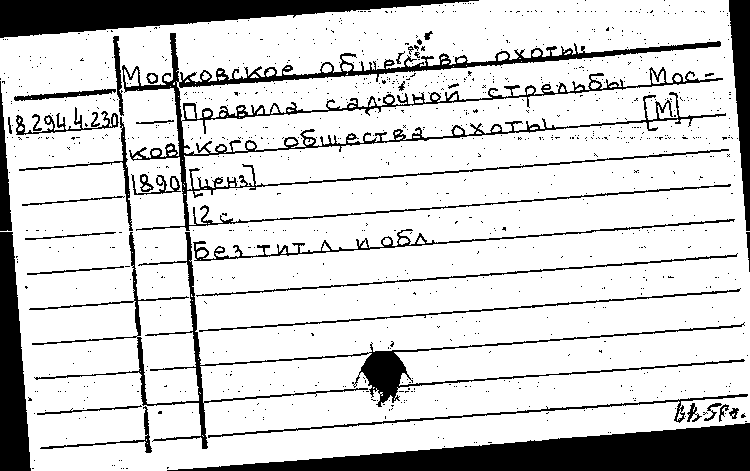 Московское общество охоты.
18.294.4.230 Правила садочной стрельбы Мос-
ковского общества охоты. [М],
1890 [ценз].
12 с.
Без тит. л. и обл.